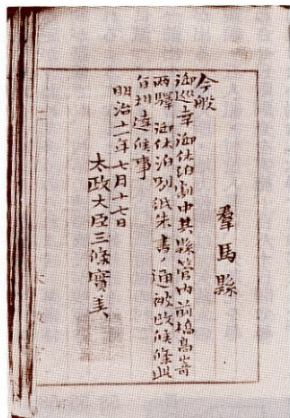 羣馬縣
今般
御巡幸御休泊割中其縣管内前橋高崎
両驛御休泊別紙朱書ノ通被改候條此
旨相達候事
明治十一年七月十七日
太政大臣三條實美